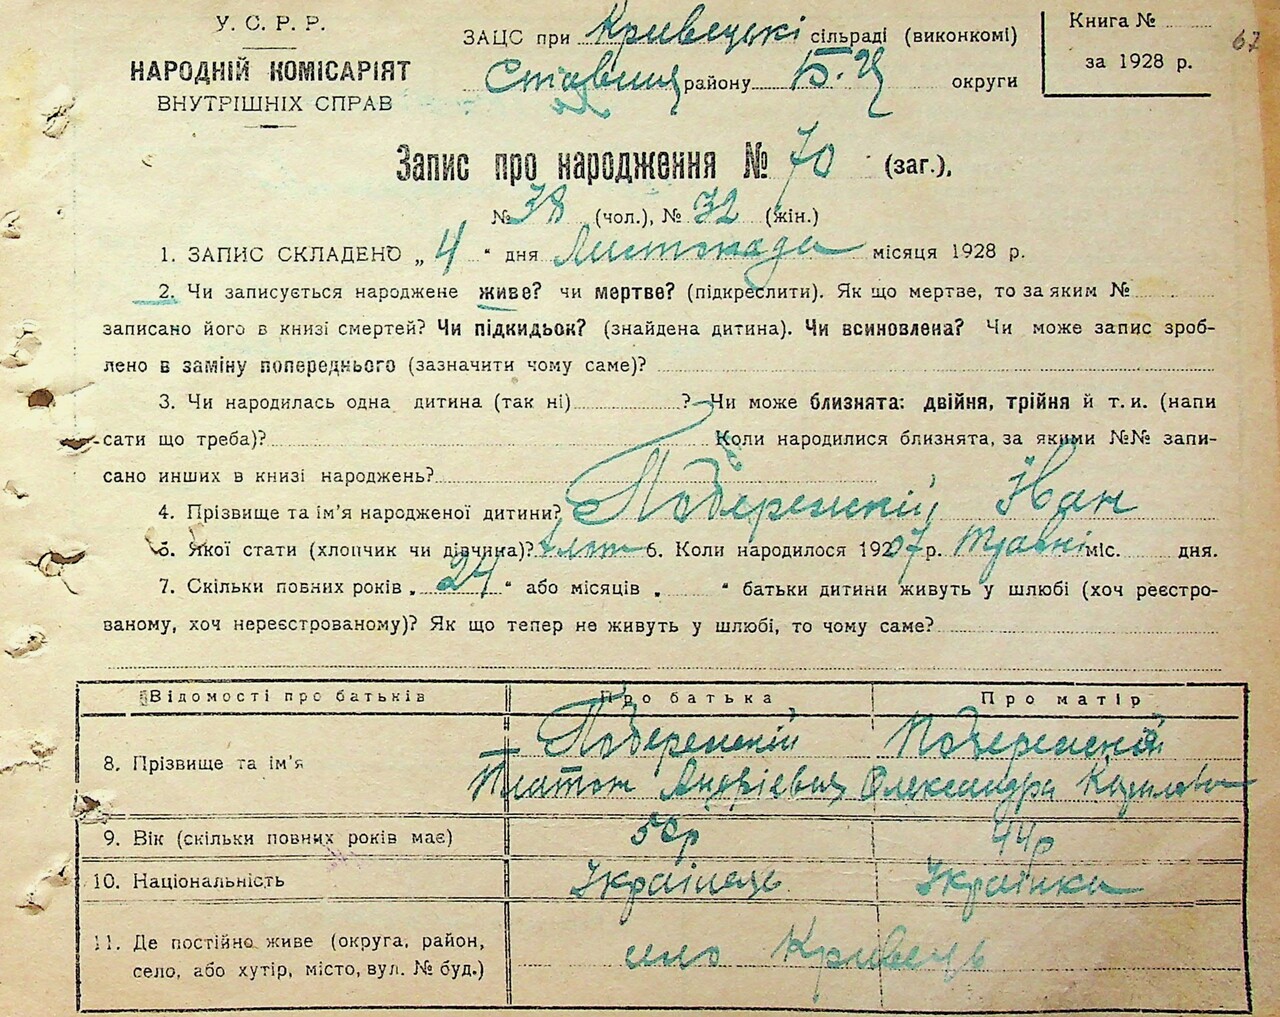 У. С. Р. Р.
НАРОДНІЙ КОМІСАРІЯТ
ВНУТРІШНІХ СПРАВ
ЗАЦС при Кривецькі сільраді (виконкомі)
Ставищ району Б.Ц округи
Книга №
за 1928 р.
67
Запис про народження № 70 (заг.),
№ 38 (чол.), № 32 (жін.)
1. ЗАПИС СКЛАДЕНО „ 4 “ дня Листопада місяця 1928 р.
2. Чи записується народжене живе? чи мертве? (підкреслити). Як що мертве, то за яким №
записано його в книзі смертей? Чи підкидьок? (знайдена дитина). Чи всиновлена? Чи може запис зроб-
лено в заміну попереднього (зазначити чому саме)?
3. Чи народилась одна дитина (так ні) ? Чи може близнята: двійня, трійня й т. и. (напи
сати що треба)? Коли народилися близнята, за якими №№ запи-
сано инших в книзі народжень?
4. Прізвище та ім’я народженої дитини? Подережній Іван
5. Якої стати (хлопчик чи дівчина)? 6. Коли народилося 1907 р. Травні міс. дня.
7. Скільки повних років „ 24 “ або місяців „ “ батьки дитини живуть у шлюбі (хоч реєстро-
ваному, хоч нереєстрованому)? Як що тепер не живуть у шлюбі, то чому саме?
Відомості про батьків Про батька Про матір
8. Прізвище та ім’я Подережній Подережній
Платон Андрієвич Олександра
9. Вік (скільки повних років має) 50р 44р
10. Національність Українець Українка
11. Де постійно живе (округа, район,
село, або хутір, місто, вул. № буд.) село Кривець